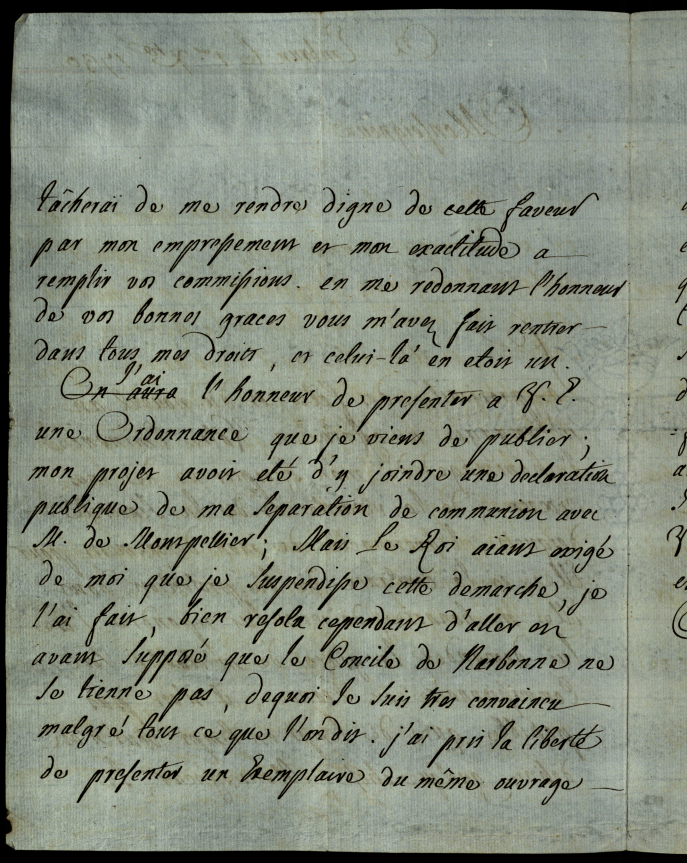 tâcherai de me rendre digne de cette faveur
par mon empressement et mon exactitude a
remplir vos commissions. en me redonnant l'honneur
de vos bonnes graces vous m'avez fait rentrer
dans tous mes droits, et celui-là en etoit un.
J'ai
On aura l'honneur de presenter a V. E.
une Ordonnance que je viens de publier;
mon projet avoit eté d'y joindre une declaration
publique de ma separation de communion avec
M. de Montpellier; Mais Le Roi aiant exigé
de moi que je suspendisse cette demarche, je
l'ai fait, bien resolu cependant d'aller en
avant supposé que le Concile de Narbonne ne
se tienne pas, dequoi Je suis tres convaincu
malgré tout ce que l'on dit. j'ai pris la liberté
de presenter un Exemplaire du même ouvrage